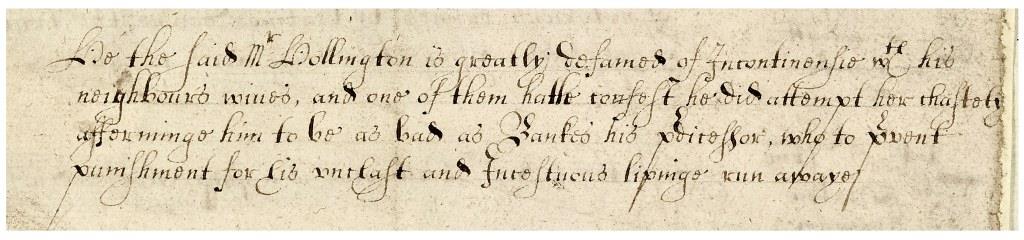 He the said Mr Hollington is greatly defamed of Incontinensie wth his
neighbours wiues, and one of them hathe confest he did attempt her chastety
afferminge him to be as bad as Bankes his pdicessor, who to pvent
punishment for his vnchast and Incestuous liuinge run awaye